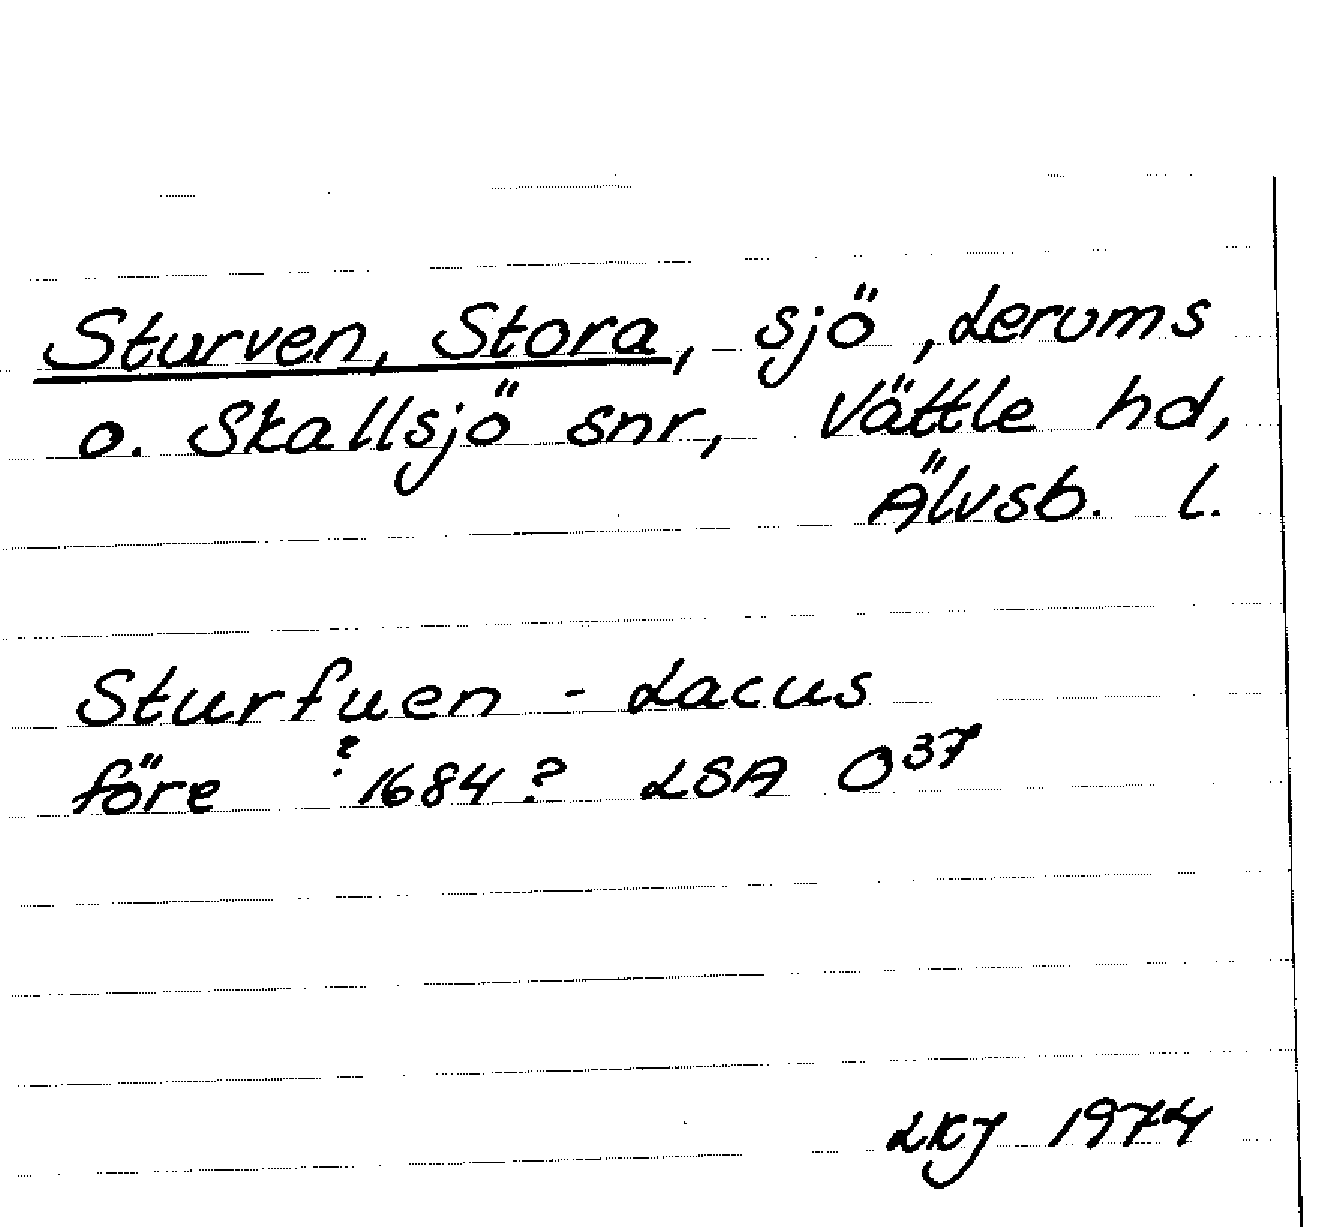 Sturven, Stora, sjö, Lerums
o. Skallsjö snr, Vättle hd,
Älvsb. l.
Sturfuen - Lacus
före ?1684? LSA O37
LKJ 1974